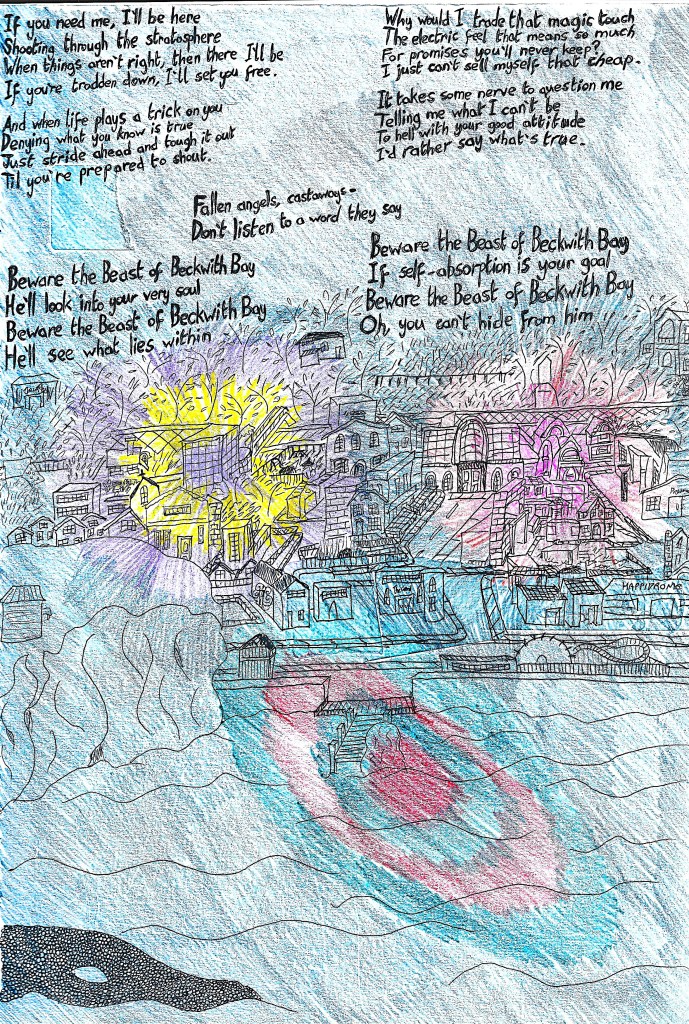 If you need me, I'll be here
Shooting through the stratosphere
When things aren't right, then there I'll be
If you're trodden down, I'll set you free.
And when life plays a trick on you
Denying what you know is true
Just stride ahead and tough it out
Til you're prepared to shout.
Why would I trade that magic touch
The electric feel that means so much
For promises you'll never keep?
I just can't sell myself that cheap.
It takes some nerve to question me
Telling me what I can't be
To hell with your good attitude
I'd rather say what's true.
Fallen angels, castaways-
Don't listen to a word they say
Beware the Beast of Beckwith Bay
He'll look into your very soul
Beware the Beast of Beckwith Bay
He'll see what lies within
Beware the Beast of Beckwith Bay
If self-absorption is your goal
Beware the Beast of Beckwith Bay
Oh, you can't hide from him
HAPPIDROME